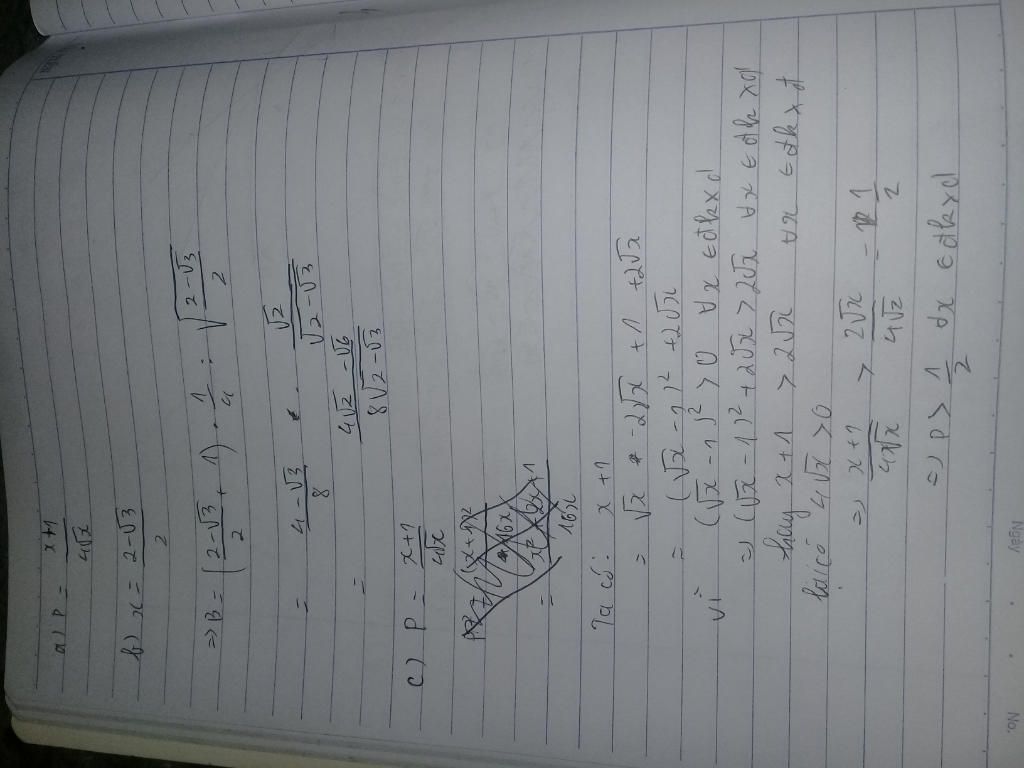 a) P = \frac{x+1}{4\sqrt{x}}
b) x = \frac{2-\sqrt{3}}{2}
=> B = (\frac{2-\sqrt{3}}{2} + 1) . \frac{1}{4} : \sqrt{\frac{2-\sqrt{3}}{2}}
= \frac{4-\sqrt{3}}{8} . \frac{\sqrt{2}}{\sqrt{2-\sqrt{3}}}
= \frac{4\sqrt{2}-\sqrt{6}}{8\sqrt{2-\sqrt{3}}}
c) P = \frac{x+1}{4\sqrt{x}}
Ta có: x + 1
= \sqrt{x} - 2\sqrt{x} + 1 + 2\sqrt{x}
= (\sqrt{x} - 1)² + 2\sqrt{x}
vì (\sqrt{x} - 1)² > 0 ∀x ∈ đkxđ
=> (\sqrt{x} - 1)² + 2\sqrt{x} > 2\sqrt{x} ∀x ∈ đkxđ
hay x + 1 > 2\sqrt{x} ∀x ∈ đkxđ
lại có 4\sqrt{x} > 0
=> \frac{x+1}{4\sqrt{x}} > \frac{2\sqrt{x}}{4\sqrt{x}} = \frac{1}{2}
=> P > \frac{1}{2} ∀x ∈ đkxđ
Ngày . .
No.